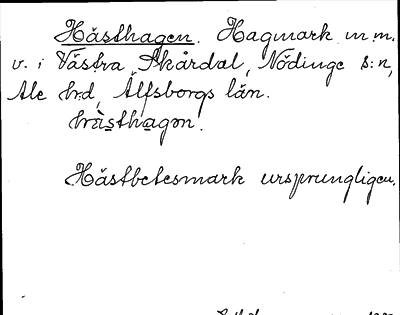 Hästhagen. Hagmark m.m.
v. i Västra Skårdal, Nödinge s:n,
Ale hd, Älfsborgs län.
hràsthagən.
Hästbetesmark ursprungligen.